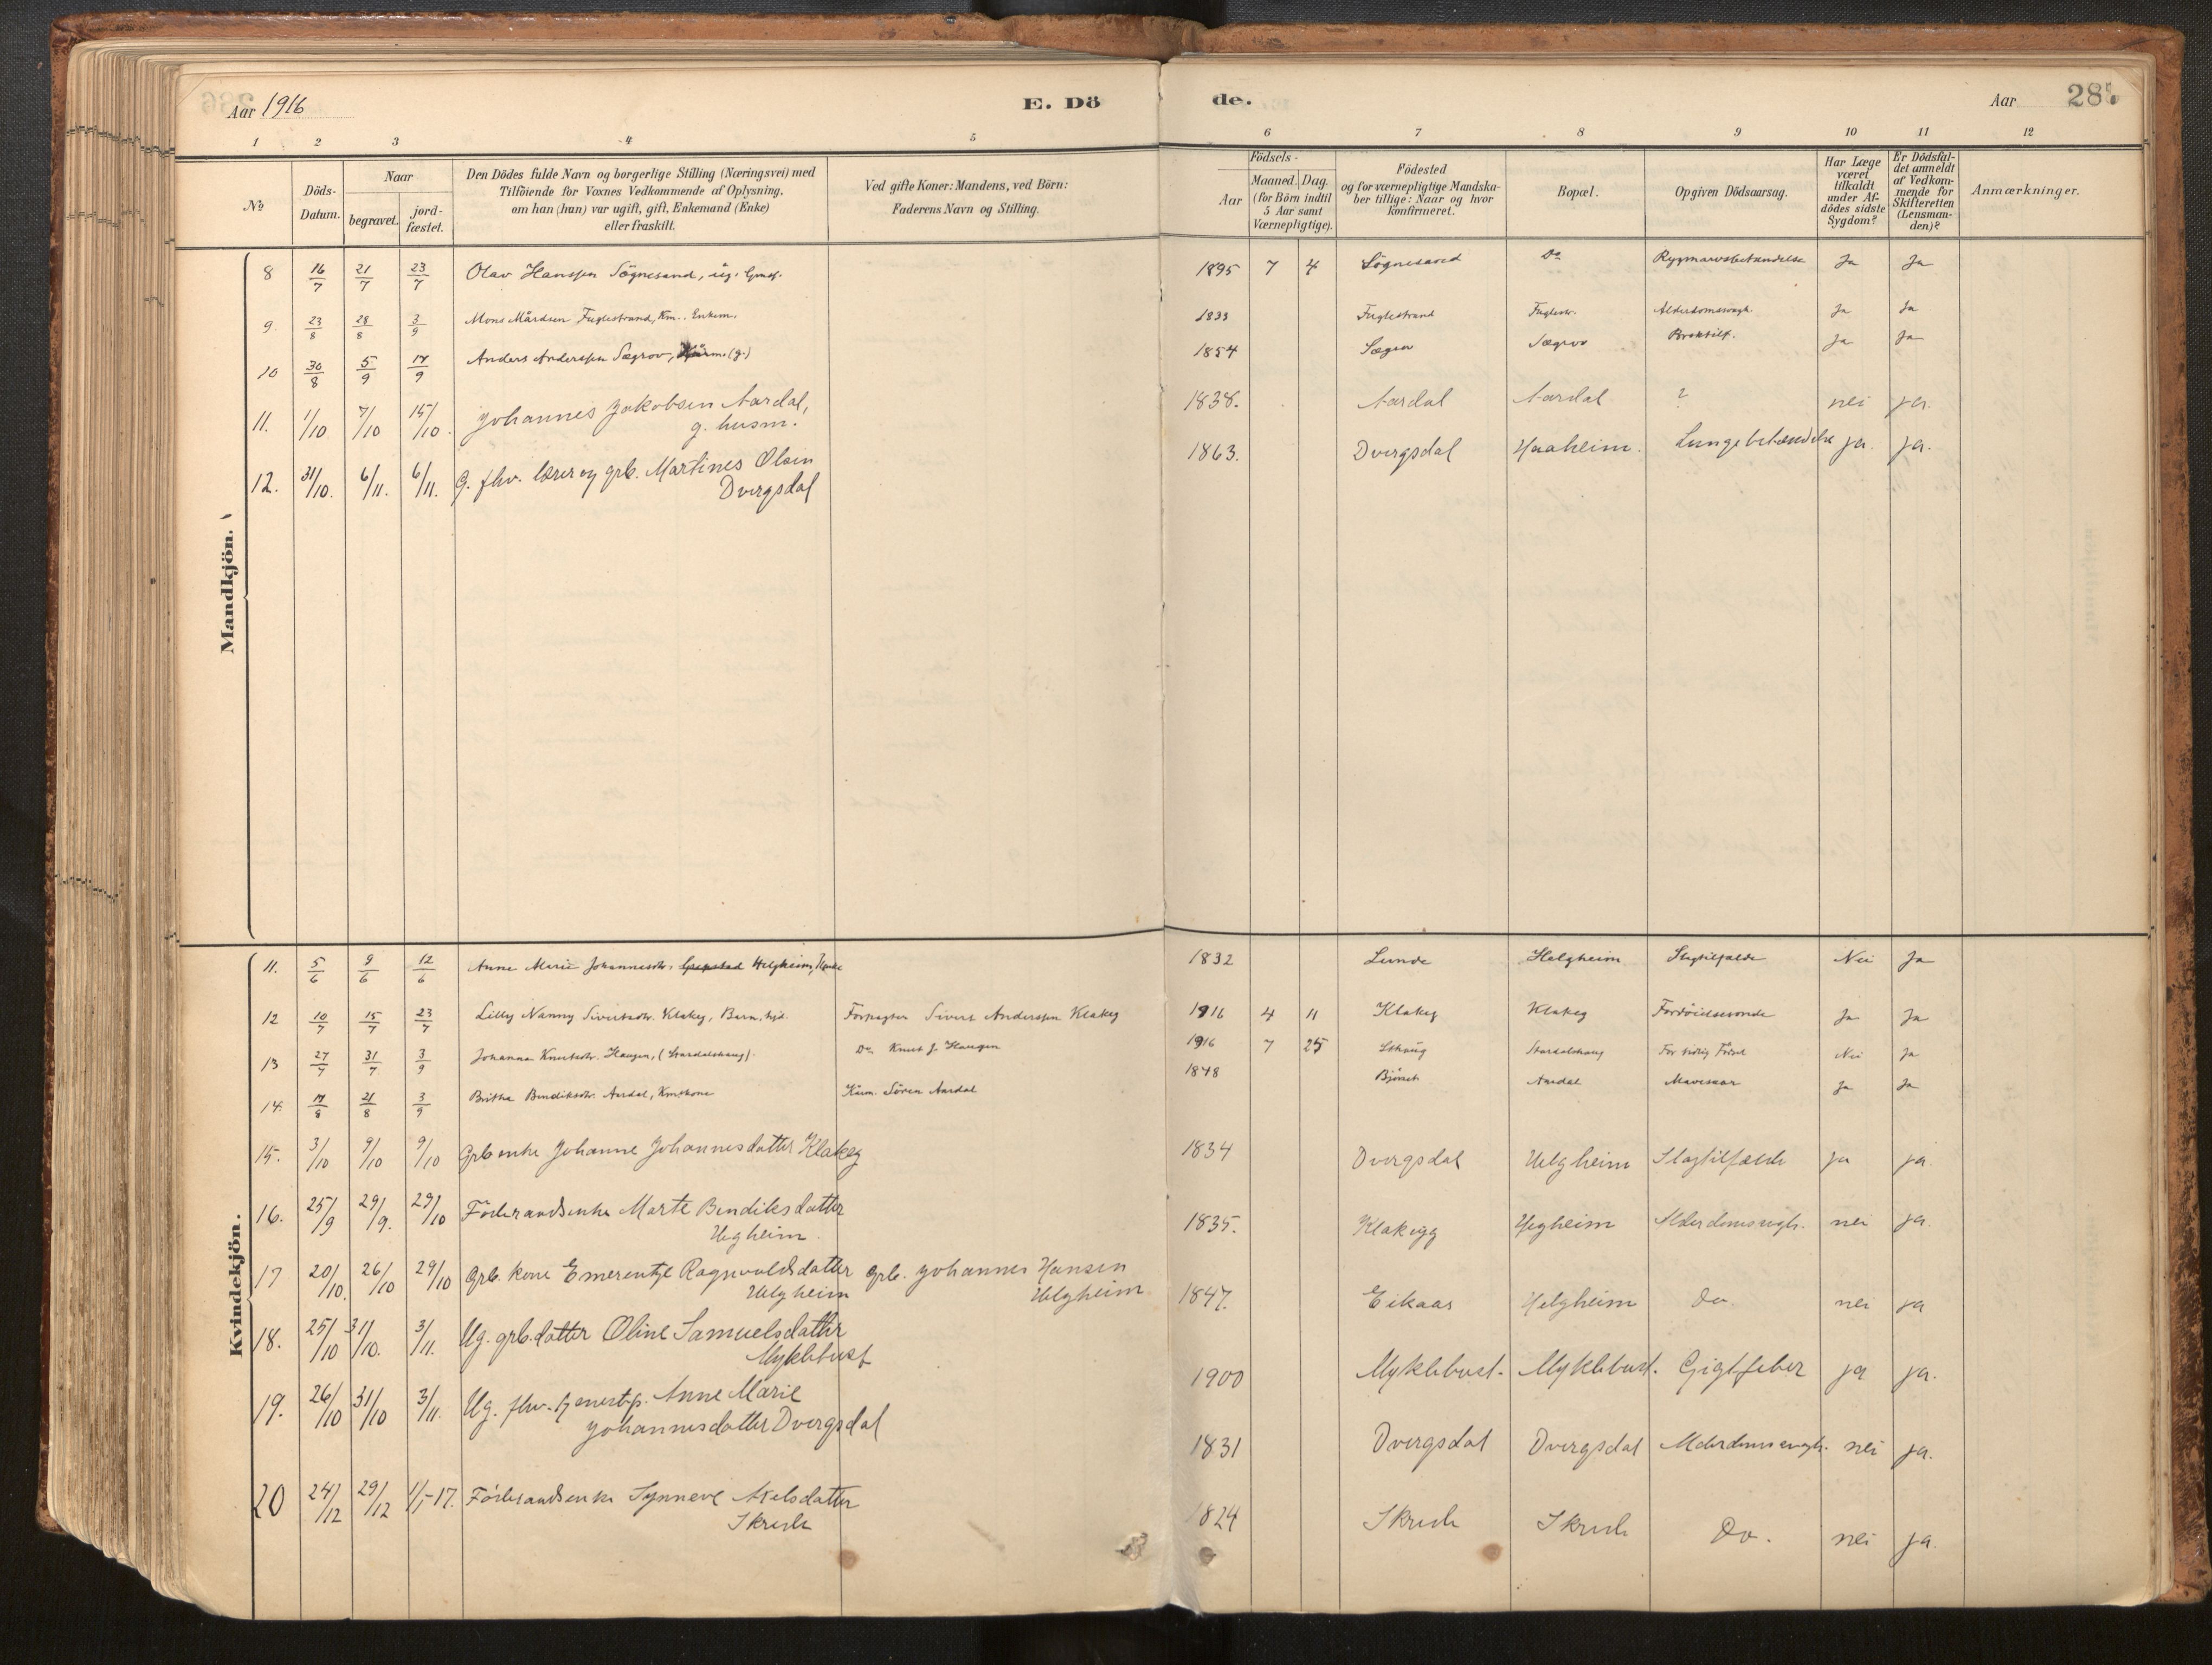 Aar 1916
E. Dö
de.
Aar
285.
1 2 3 4 5 6 7 8 9 10 11 12
No
Döds-
Datum.
Naar
begravet.
jord-
fæstet.
Den Dödes fulde Navn og borgerlige Stilling (Næringsvei) med
Tilföiende for Voxnes Vedkommende af Oplysning,
om han (hun) var ugift, gift, Enkemand (Enke)
eller fraskilt.
Ved gifte Koner: Mandens, ved Börn:
Faderens Navn og Stilling.
Födsels-
Aar
Maaned. Dag.
(for Börn indtil
5 Aar samt
Værnepligtige).
Födested
og for værnepligtige Mandska-
ber tillige: Naar og hvor
konfirmeret.
Bopæl.
Opgiven Dödsaarsag.
Har Læge
været
tilkaldt
under Af-
dödes sidste
Sygdom?
Er Dödsfal-
det anmeldt
af Vedkom-
mende for
Skifteretten
(Lensman-
den)?
Anmærkninger.
Mandkjön.
8 16/7 21/7 23/7 Olav Hanssen Sögnesand, ug. 1895 7 4 Sögnesand Do Rygmarvsbetændelse Ja Ja
9. 23/8 28/8 3/9 Mons Mårdsen Fuglestrand, Km. Enkem. 1833 Fuglestrand Fuglestr. Alderdomssvagh. Ja Ja
10 30/8 5/9 17/9 Anders Anderssen Sægrov, (g.) 1854 Sægrov Sægrov Broktilf. Ja Ja
11. 1/10 7/10 15/10. Johannes Jakobsen Aardal, 1838. Aardal Aardal ? nei ja.
g. husm.
12. 31/10. 6/11. 6/11. G. fhv. lærer og grb. Martines Olsen 1863. Dvergsdal Haaheim. Lungebetændelse ja. ja.
Dvergsdal
Kvindekjön.
11. 5/6 9/6 12/6 Anne Marie Johannesdtr. Helgheim, 1832 Lunde Helgheim Slagtilfælde Nei Ja
12 10/7 15/7 23/7 Lilly Nanny Sivertsdtr. Klakeg, Barn, hjd. Forpagter Sivert Anderssen Klakeg 1916 4 11 Klakeg Klakeg Fordöielsesonde Ja Ja
13 27/7 31/7 3/9 Johanna Knutsdtr. Haugen, (Stardalshaug). Do Knut J. Haugen 1916 7 25 Sthaug Stardalshaug For tidlig Födsel Nei Ja
14. 17/8 21/8 3/9 Britha Bendiksdtr. Aardal, Kmskone Kum. Sören Aardal 1848 Björset Aardal Mavesaar Ja Ja
15. 3/10 9/10 9/10 Grb enke Johanne Johannesdatter Klakeg 1834 Dvergsdal Helgheim Slagtilfælde ja ja.
16. 25/9 29/9. 29/10 Föderaadsenke Marte Bendiksdatter 1835. Klakegg Helgheim Alderdomssvgh. nei ja.
Helgheim.
17 20/10. 26/10 29/10 Grb. kone Emerentje Ragnvaldsdatter Grb. Johannes Hansen 1847. Eikaas Helgheim do. nei ja
Helgheim Helgheim
18. 25/10 31/10. 3/11. Ug. grb.datter Oline Samuelsdatter 1900 Myklebust. Myklebust. Gigtfeber ja ja.
Myklebust
19. 26/10 31/10 3/11. Ug. fhv. tjenestp. Anne Marie
Johannesdatter Dvergsdal 1831 Dvergsdal Dvergsdal Alderdomssvagh. nei ja.
20 24/12 29/12 1/1-17. Föderaadsenke Synneve Axelsdatter 1824 Skrede Skrede Do. nei ja.
Skrede